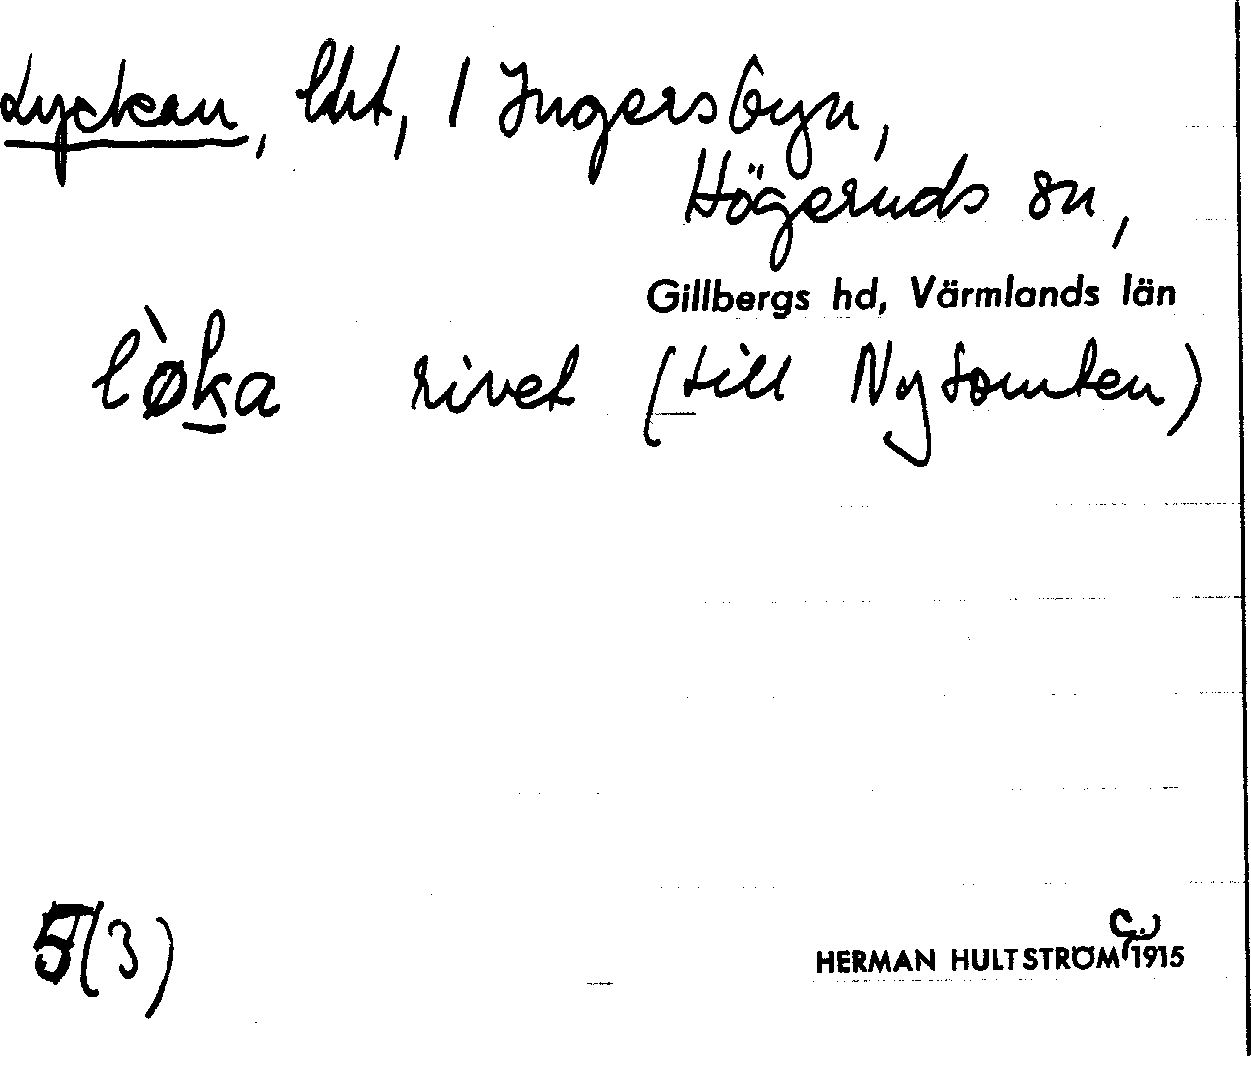 Lyckan, lht, 1 Ingersbyn,
Högeruds sn,
Gillbergs hd, Värmlands län
lø̀ka rivet (till Nytomten)
5(3)
HERMAN HULTSTRÖM c. 1915